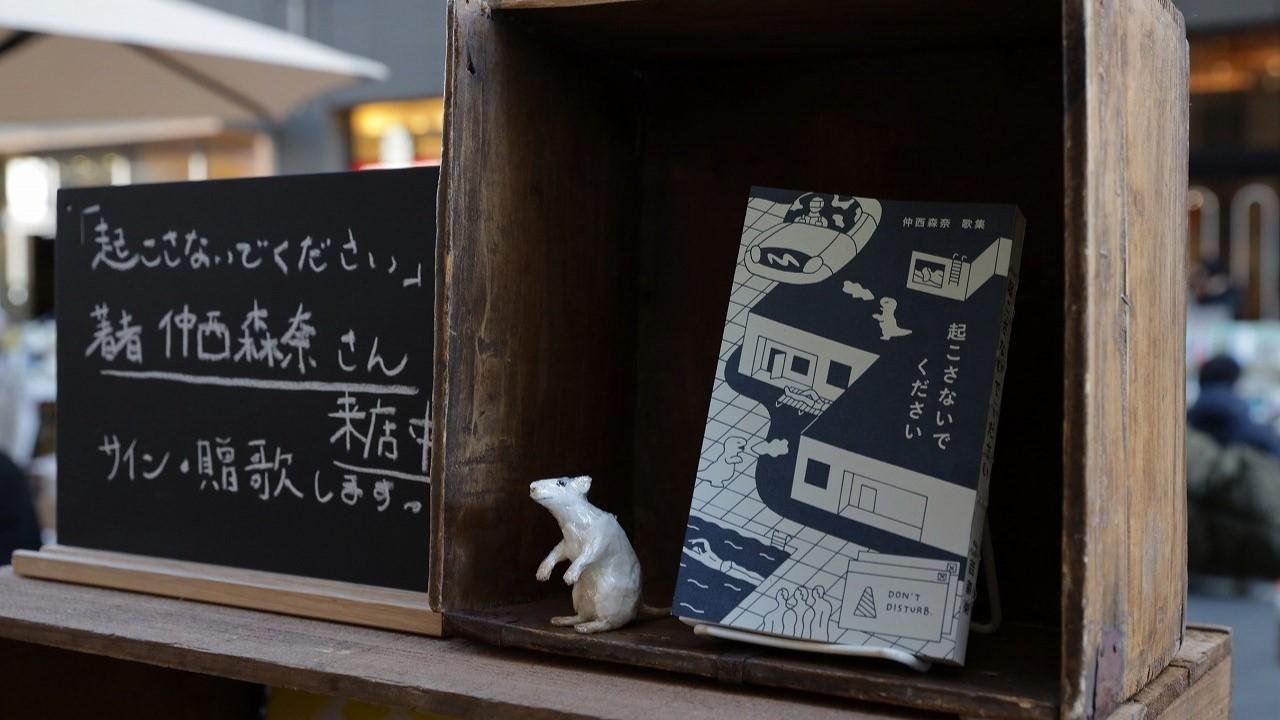 「起こさないでください」
著者 仲西森奈 さん
来店中
サイン・贈歌します。
仲西森奈 歌集
起こさないで
ください
DON'T
DISTURB.